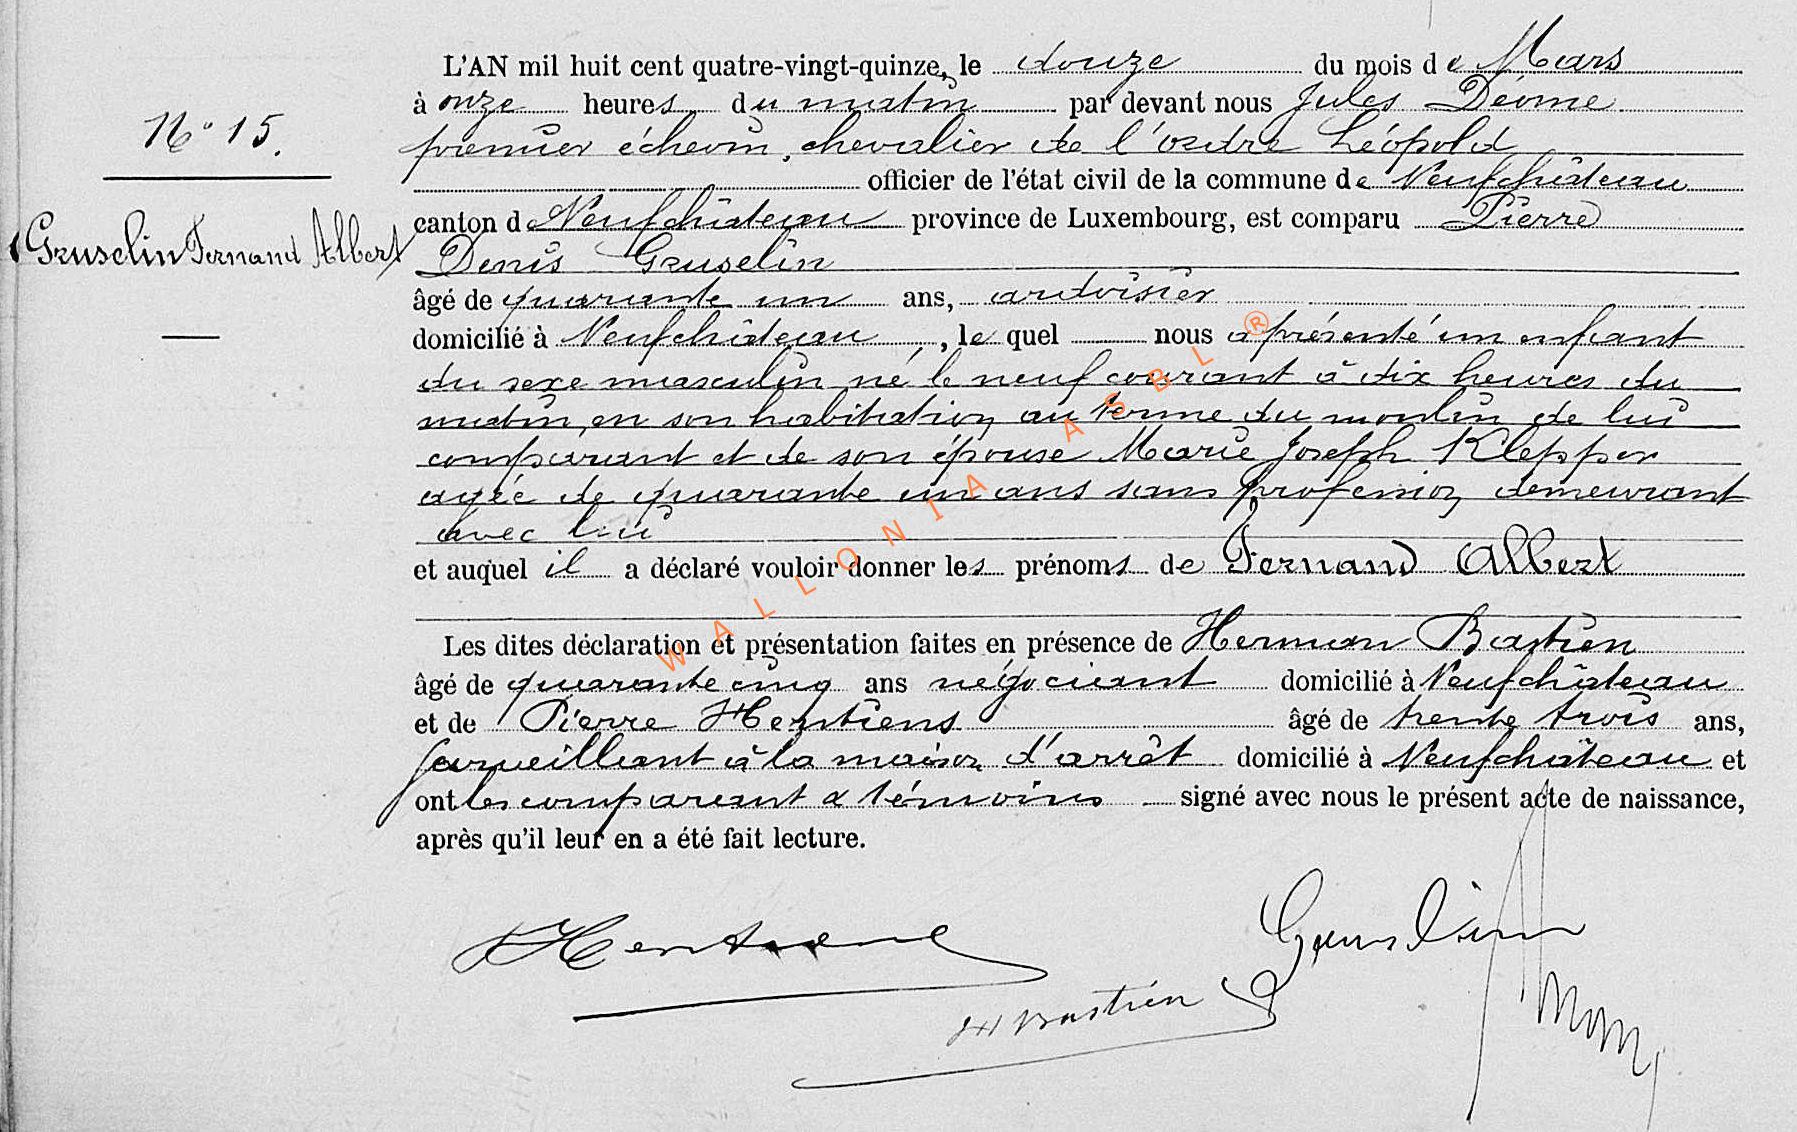 L'AN mil huit cent quatre-vingt-quinze, le douze du mois de Mars
à onze heures du matin par devant nous Jules Déome
N° 15.
premier échevin, chevalier de l'ordre Léopold
officier de l'état civil de la commune de Neufchâteau
canton de Neufchâteau province de Luxembourg, est comparu Pierre
Gruselin Fernand Albert
Denis Gruselin
âgé de quarante un ans, ardoisier
domicilié à Neufchâteau, le quel nous a présenté un enfant
du sexe masculin né le neuf courant à dix heures du
matin, en son habitation au terme du moulin de lui
comparant et de son épouse Marie Joseph Klepper
agée de quarante un ans sans profession demeurant
avec lui
et auquel il a déclaré vouloir donner les prénoms de Fernand Albert
Les dites déclaration et présentation faites en présence de Herman Bastien
âgé de quarante cinq ans négociant domicilié à Neufchâteau
et de Pierre Hentiens âgé de trente trois ans,
surveillant à la maison d'arrêt domicilié à Neufchâteau et
ont les comparant & témoins signé avec nous le présent acte de naissance,
après qu'il leur en a été fait lecture.
Gruselin
H Bastien
WALLONIA ASBL ®